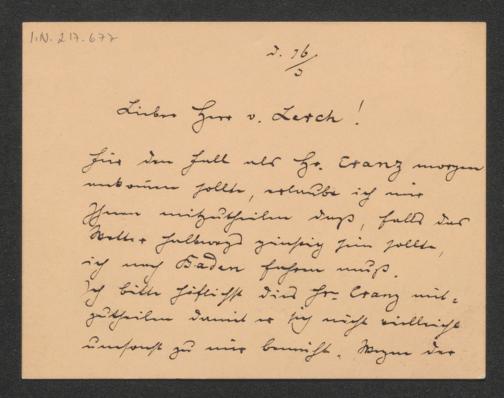 I.N. 217.677
d. 16/3
Lieber Herr v. Lerch!
Für den Fall als Hr. Cranz morgen
ankommen sollte, erlaube ich mir
Ihnen mitzutheilen daß, falls das
Wetter halbwegs günstig sein sollte,
ich nach Baden fahren muß.
Ich bitte höflichst dies Hr. Cranz mit=
zutheilen damit er sich nicht vielleicht
umsonst zu mir bemüht. Wegen der